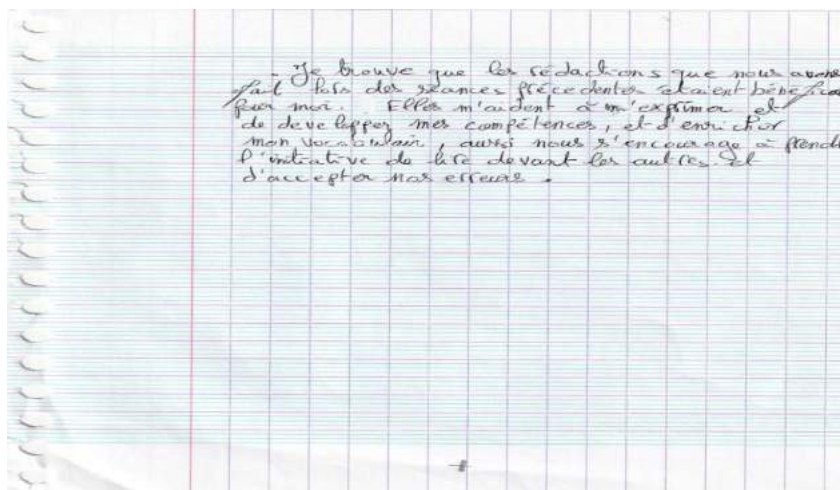 . Je trouve que les rédactions que nous avons
fait lors des séances précedentes étaient bénéfi
pour moi. Elles m'aident à m'exprimer et
de developper mes compétences, et d'enrichir
mon vocabulair, aussi nous s'encourage à prend
l'initiative de lire devant les autres. et
d'accepter nos erreurs.